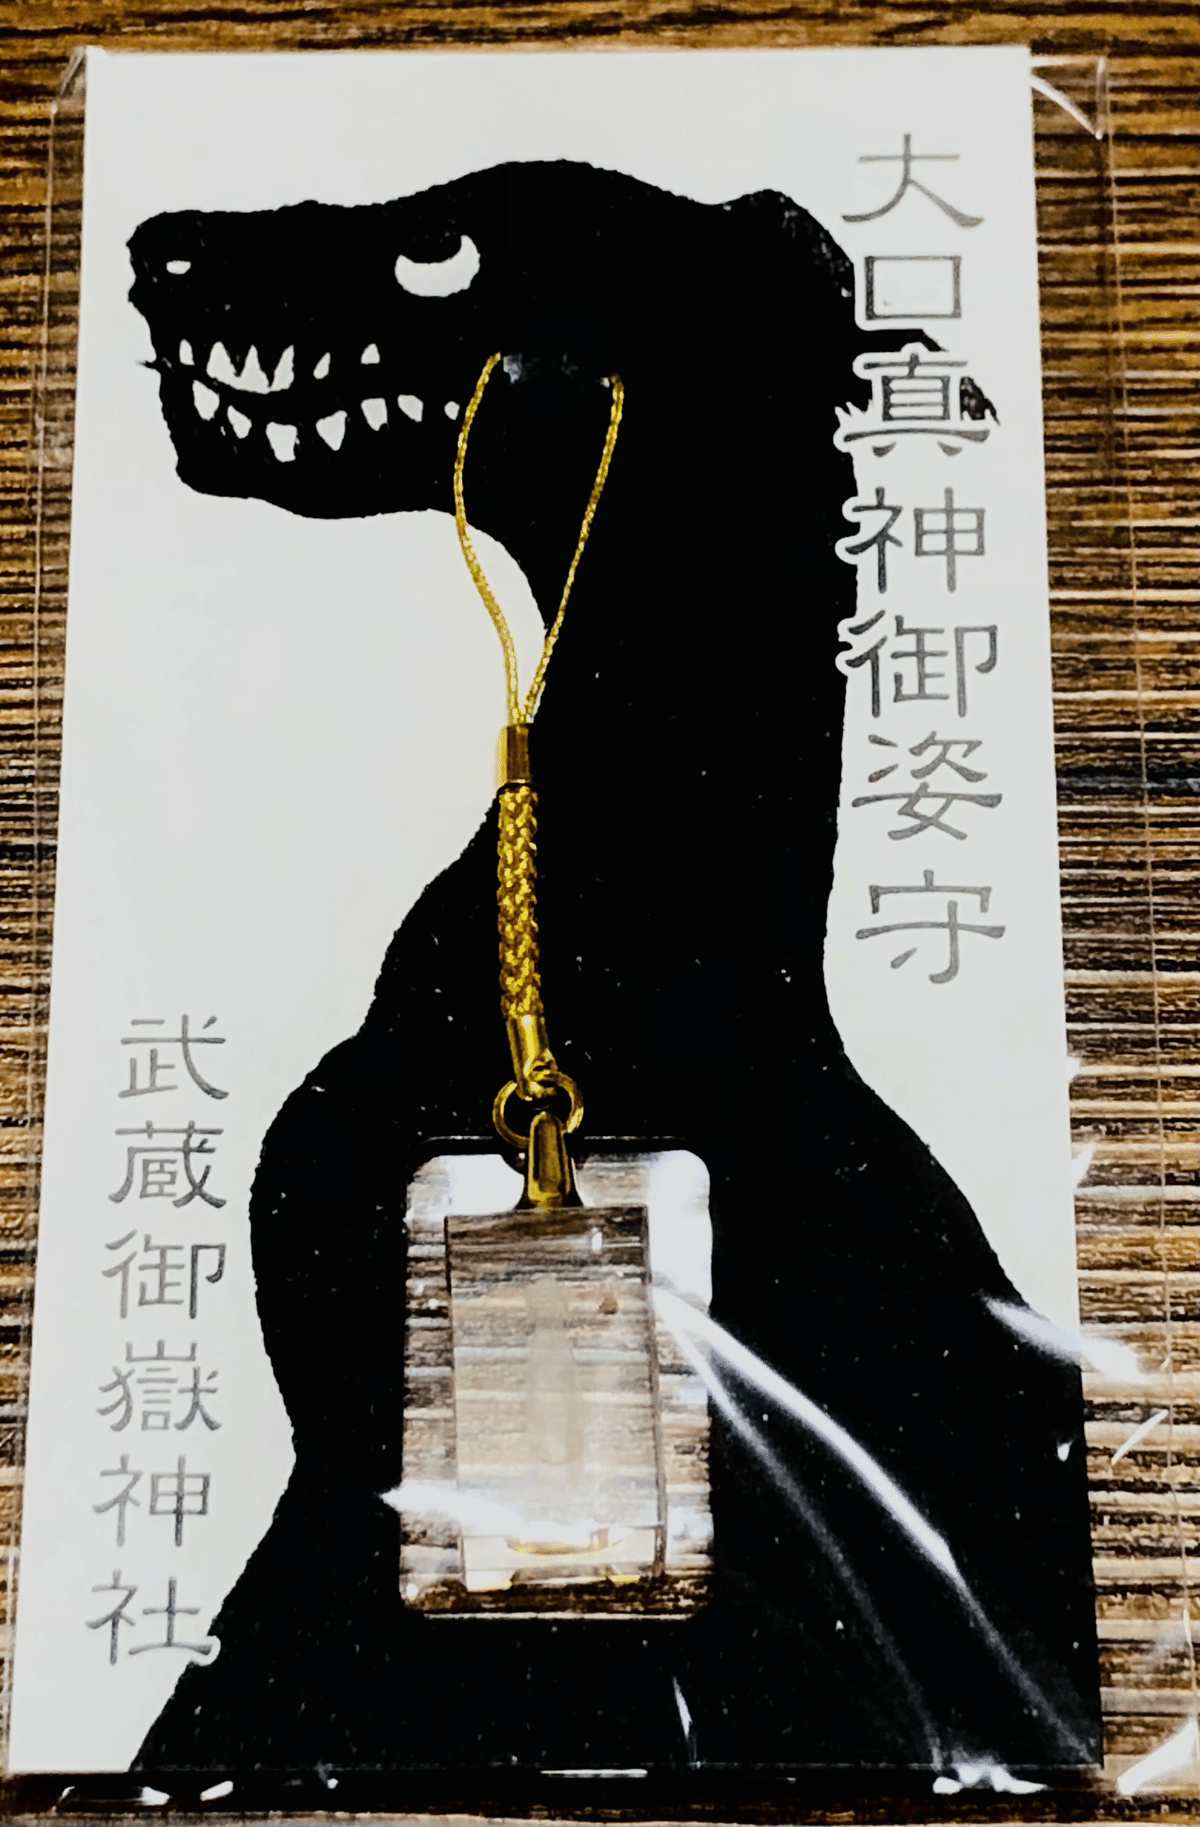 大口真神御姿守
武蔵御嶽神社